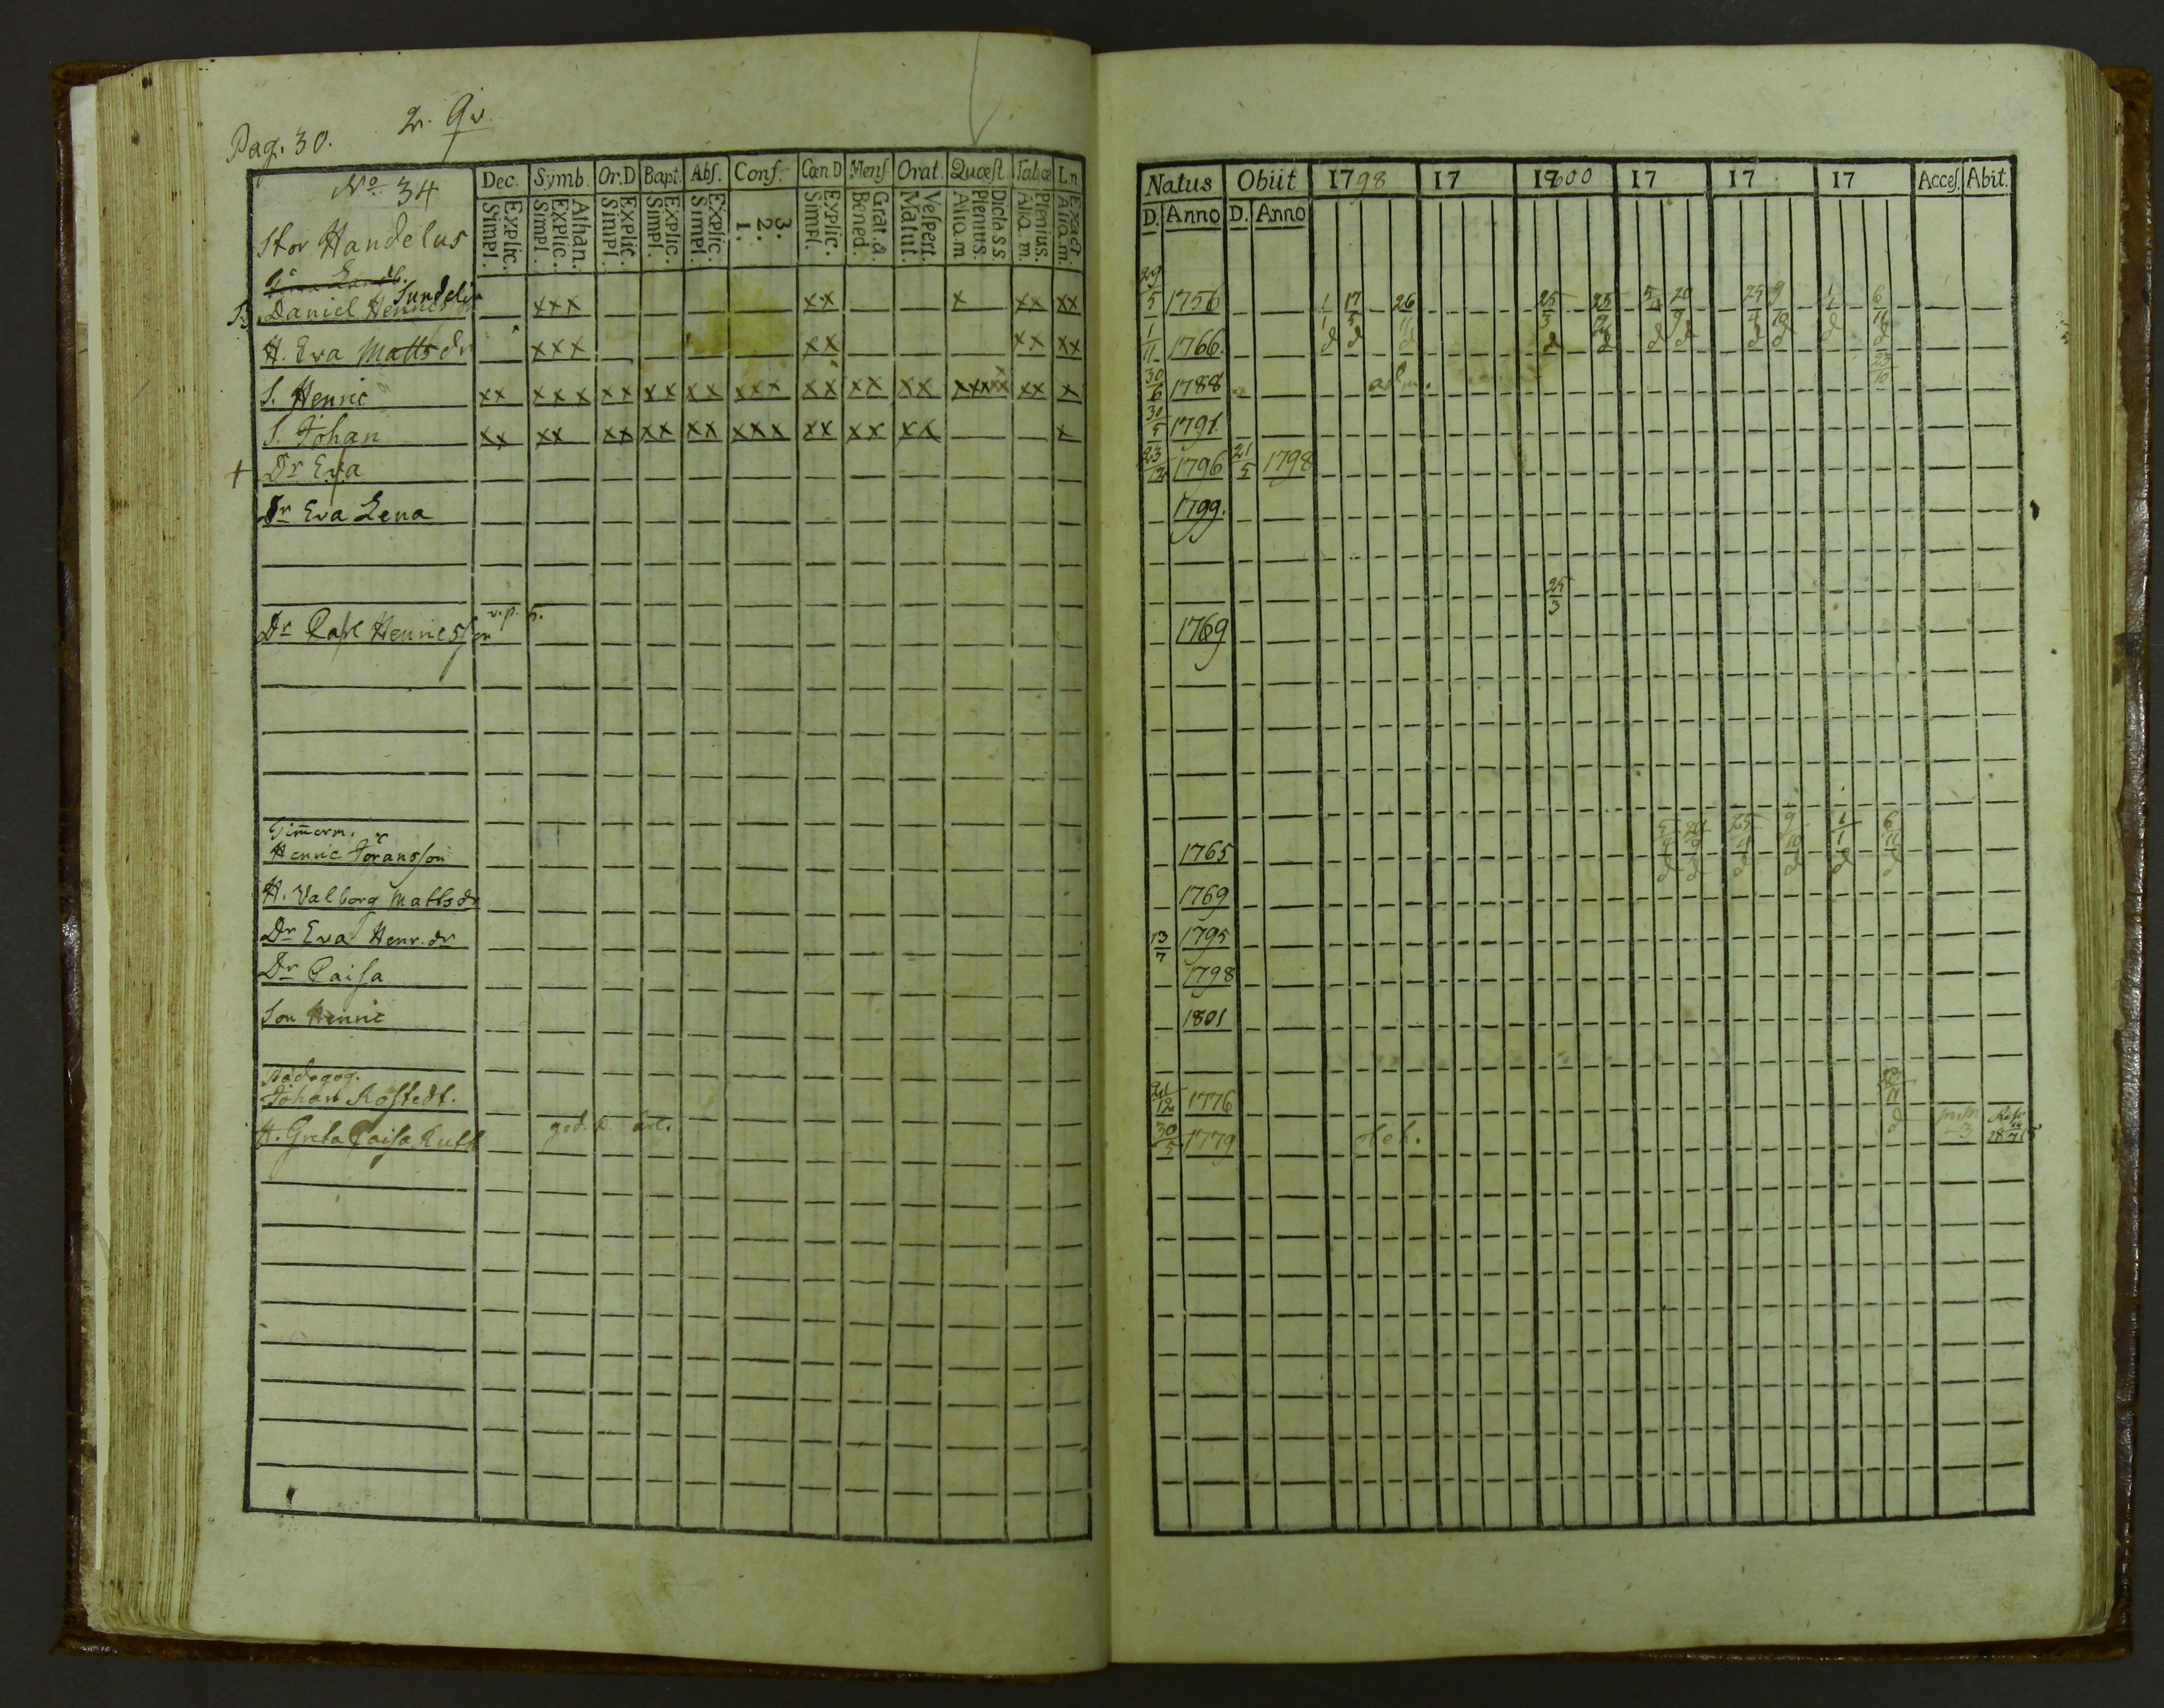 Pag. 30. 2. Qv.
Dec. Symb. Or.D Bapt. Abſ. Conſ. Cœn.D Menſ Orat. Quæſt Tabæ Ln.
Nº 34
Explic. Simpl. Athan. Explic. Simpl. Explic. Simpl. Explic. Simpl. Explic. Simpl. 3. 2. 1. Explic. Simpl. Grat.a. Bened. Veſpert. Matut. Dictass Plenius. Aliq.m Plenius. Aliq.m. Exact. Aliq.m.
Stor Handelus
Sundelin
Daniel Henricsson xxx xx x xx xx
H. Eva Matts dr xxx xx xx xx
S. Henric xx xxx xx xx xx xxx xx xx xx xxxx xx x
S. Johan xx xx xx xx xx xxx xx xx xx x
+ Dr Eva
Dr Eva Lena
v.p. 5.
Dr Carl Henricsson
Timerm.
Henric Göransson
H. Valborg Matts dr
Dr Eva Henr. dr
Dr Caisa
Son Henric
Pædagog.
Johan Röstedt.
H. Greta Caisa Ruth
Natus Obiit 1798 17 1800 17 17 17 Acceſ. Abit.
D. Anno D. Anno
29/5 1756 1/1 17/5 26/11 25/3 25 5 20/9 25/4 9/10 1/1 6/11
1/11 1766. d d d d d d d d d d d
30/6 1788 adm. 23/10
30/5 1791.
23/12 1796 21/5 1798
1799.
25/3
1769
1765 5 20/9 25/4 9/10 1/1 6/11
d d d d d d
1769
13/7 1795
1798
1801
21/12 1776
30/5 1779